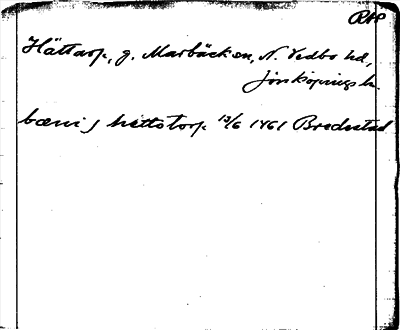 RAP
Hättarp, g. Marbäcken, N. Vedbo hd,
Jönköpings l.
bæni j hættetorp 13/6 1461 Bredestad